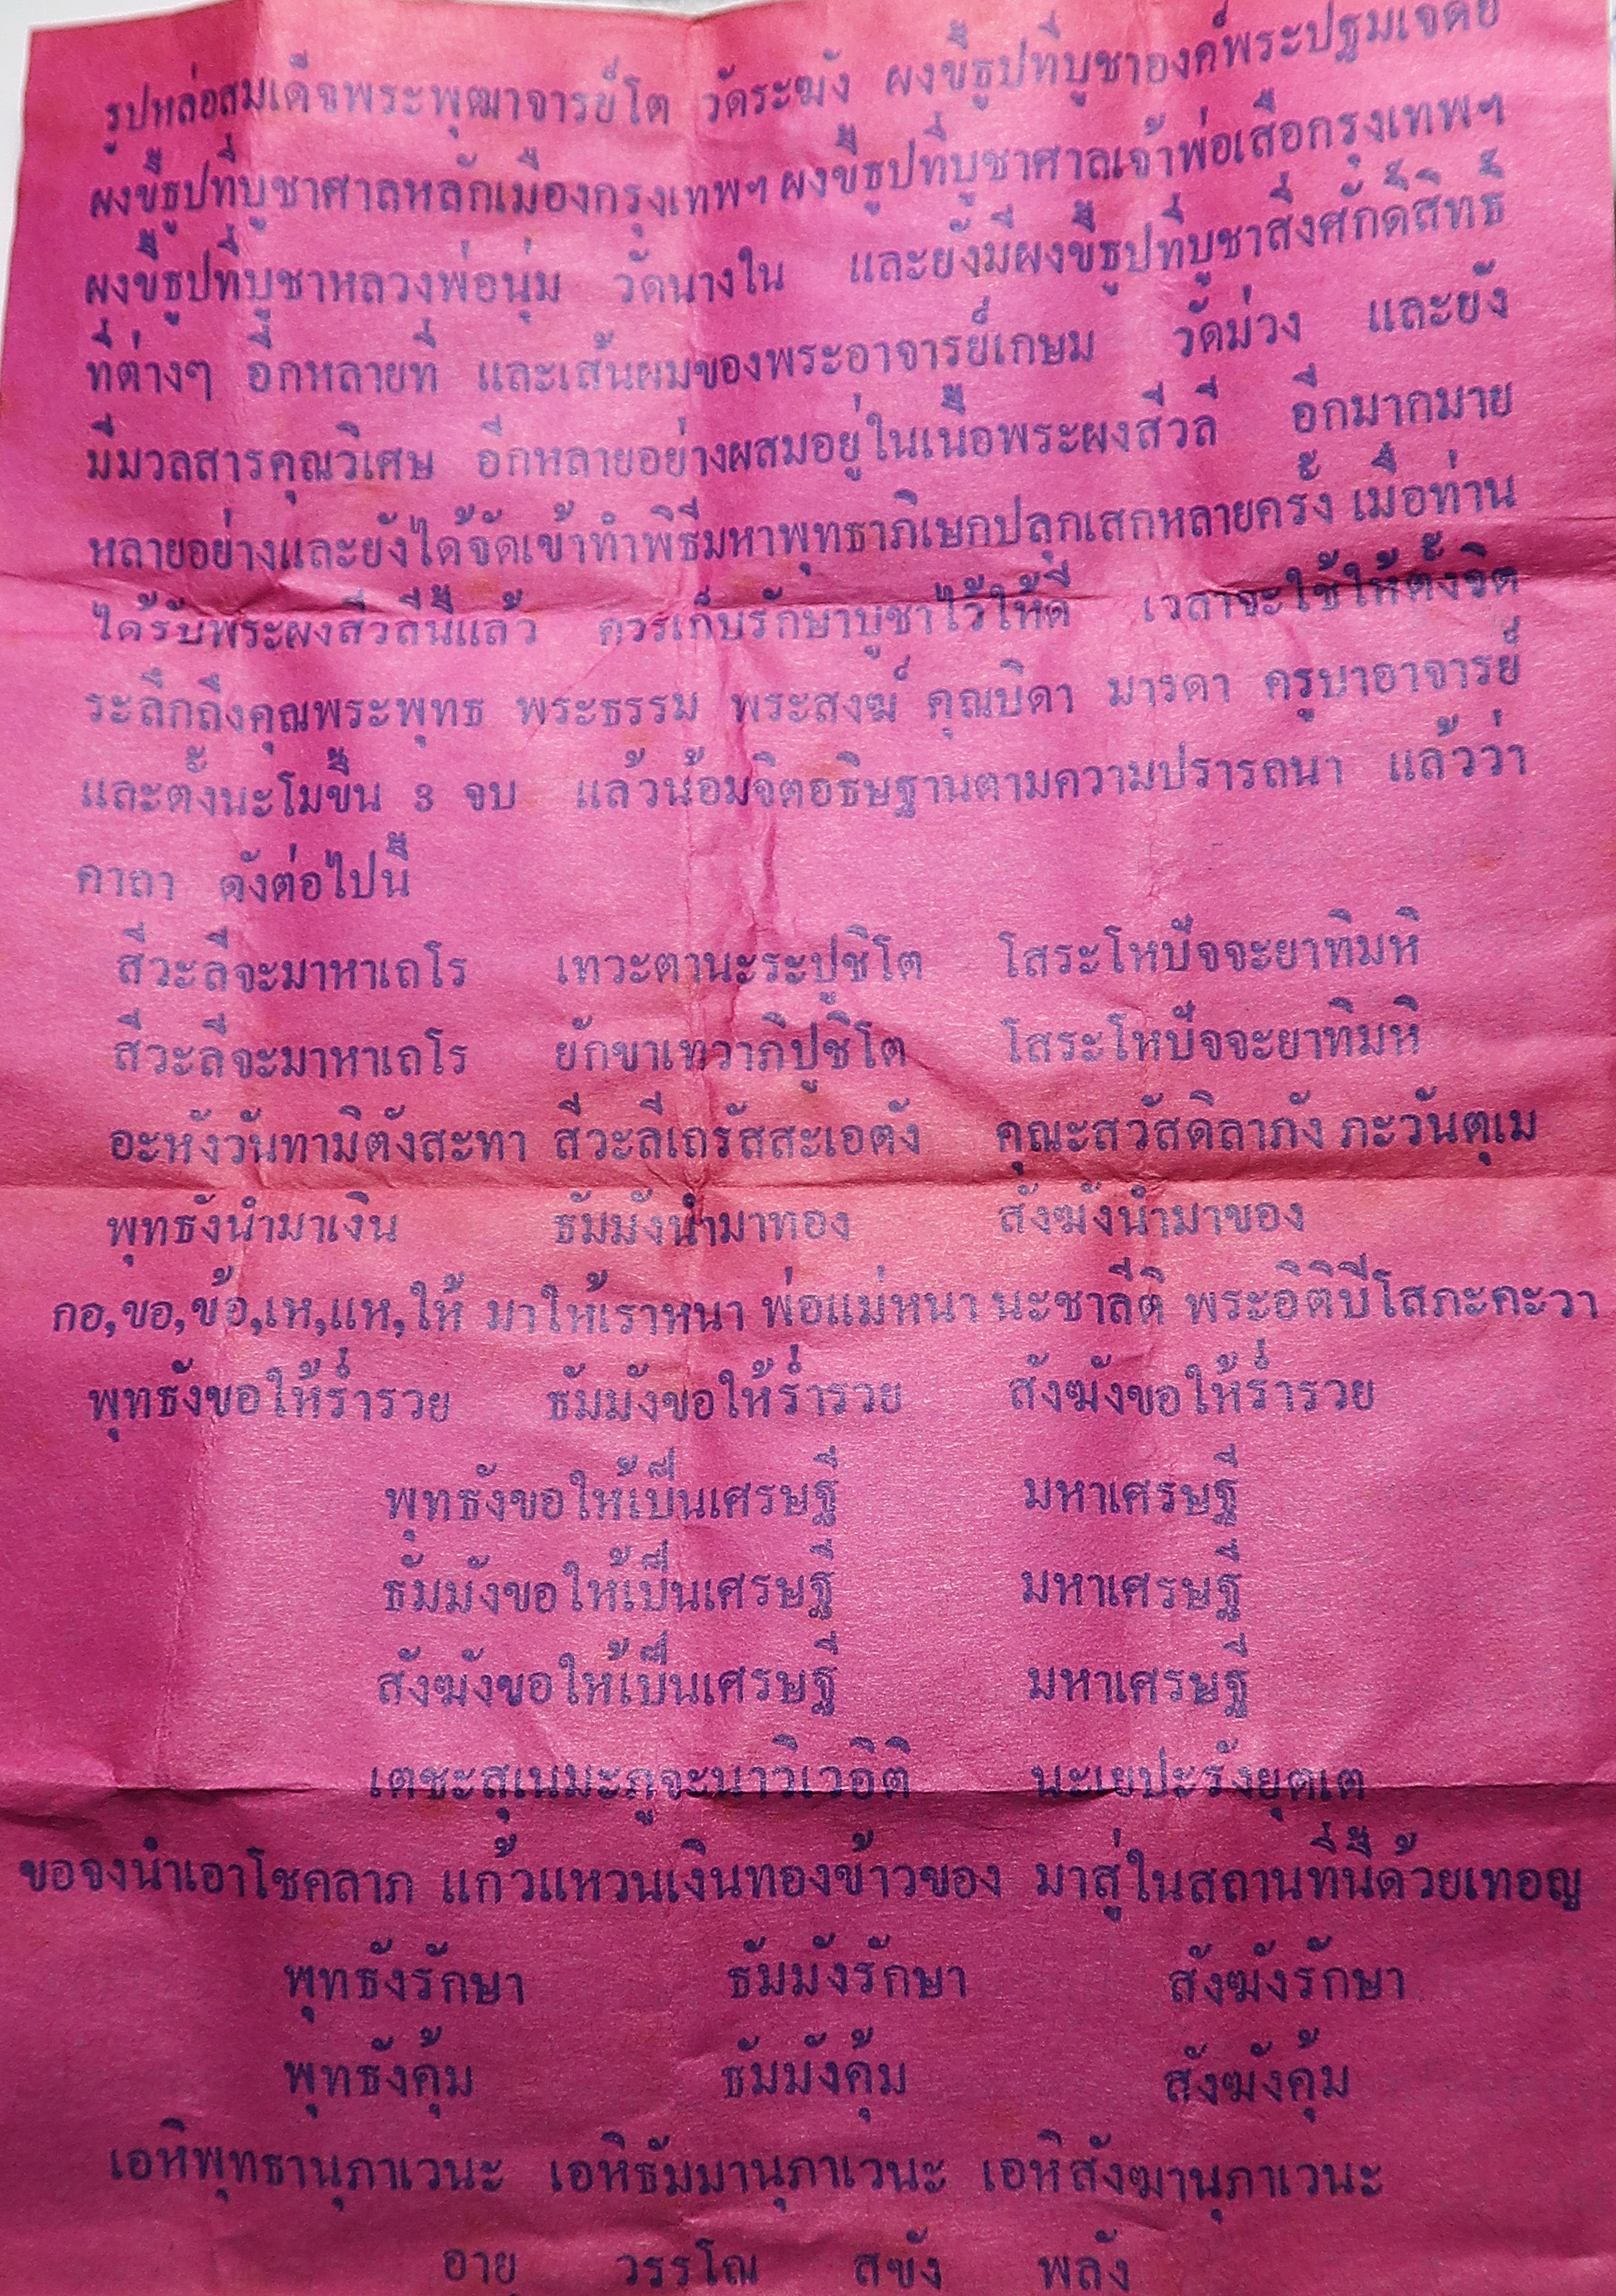 รูปหล่อสมเด็จพระพุฒาจารย์โต วัดระฆัง ผงขี้ธูปที่บูชาองค์พระปฐมเจดีย์
ผงขี้ธูปที่บูชาศาลหลักเมืองกรุงเทพฯ ผงขี้ธูปที่บูชาศาลเจ้าพ่อเสือกรุงเทพฯ
ผงขี้ธูปที่บูชาหลวงพ่อนุ่ม วัดนางใน และยังมีผงขี้ธูปที่บูชาสิ่งศักดิ์สิทธิ์
ที่ต่างๆ อีกหลายที่ และเส้นผมของพระอาจารย์เกษม วัดม่วง และยัง
มีมวลสารคุณวิเศษ อีกหลายอย่างผสมอยู่ในเนื้อพระผงสีวลี อีกมากมาย
หลายอย่างและยังได้จัดเข้าทำพิธีมหาพุทธาภิเษกปลุกเสกหลายครั้ง เมื่อท่าน
ได้รับพระผงสีวลีนี้แล้ว ควรเก็บรักษาบูชาไว้ให้ดี เวลาจะใช้ให้ตั้งจิต
ระลึกถึงคุณพระพุทธ พระธรรม พระสงฆ์ คุณบิดา มารดา ครูบาอาจารย์
และตั้งนะโมขึ้น 3 จบ แล้วน้อมจิตอธิษฐานตามความปรารถนา แล้วว่า
คาถา ดังต่อไปนี้
สีวะลีจะมาหาเถโร เทวะตานะระปูชิโต โสระโหปัจจะยาทิมหิ
สีวะลีจะมาหาเถโร ยักขาเทวาภิปูชิโต โสระโหปัจจะยาทิมหิ
อะหังวันทามิตังสะทา สีวะลีเถรัสสะเอตัง คุณะสวัสดิลาภัง ภะวันตุเม
พุทธังนำมาเงิน ธัมมังนำมาทอง สังฆังนำมาของ
กอ,ขอ,ข้อ,เห,แห,ให้ มาให้เราหนา พ่อแม่หนา นะชาลีติ พระอิติปิโสภะคะวา
พุทธังขอให้ร่ำรวย ธัมมังขอให้ร่ำรวย สังฆังขอให้ร่ำรวย
พุทธังขอให้เป็นเศรษฐี มหาเศรษฐี
ธัมมังขอให้เป็นเศรษฐี มหาเศรษฐี
สังฆังขอให้เป็นเศรษฐี มหาเศรษฐี
เตชะสุเนมะภูจะนาวิเวอิติ นะเยปะรังยุตเต
ขอจงนำเอาโชคลาภ แก้วแหวนเงินทองข้าวของ มาสู่ในสถานที่นี้ด้วยเทอญ
พุทธังรักษา ธัมมังรักษา สังฆังรักษา
พุทธังคุ้ม ธัมมังคุ้ม สังฆังคุ้ม
เอหิพุทธานุภาเวนะ เอหิธัมมานุภาเวนะ เอหิสังฆานุภาเวนะ
อายุ วรรโณ สุขัง พลัง